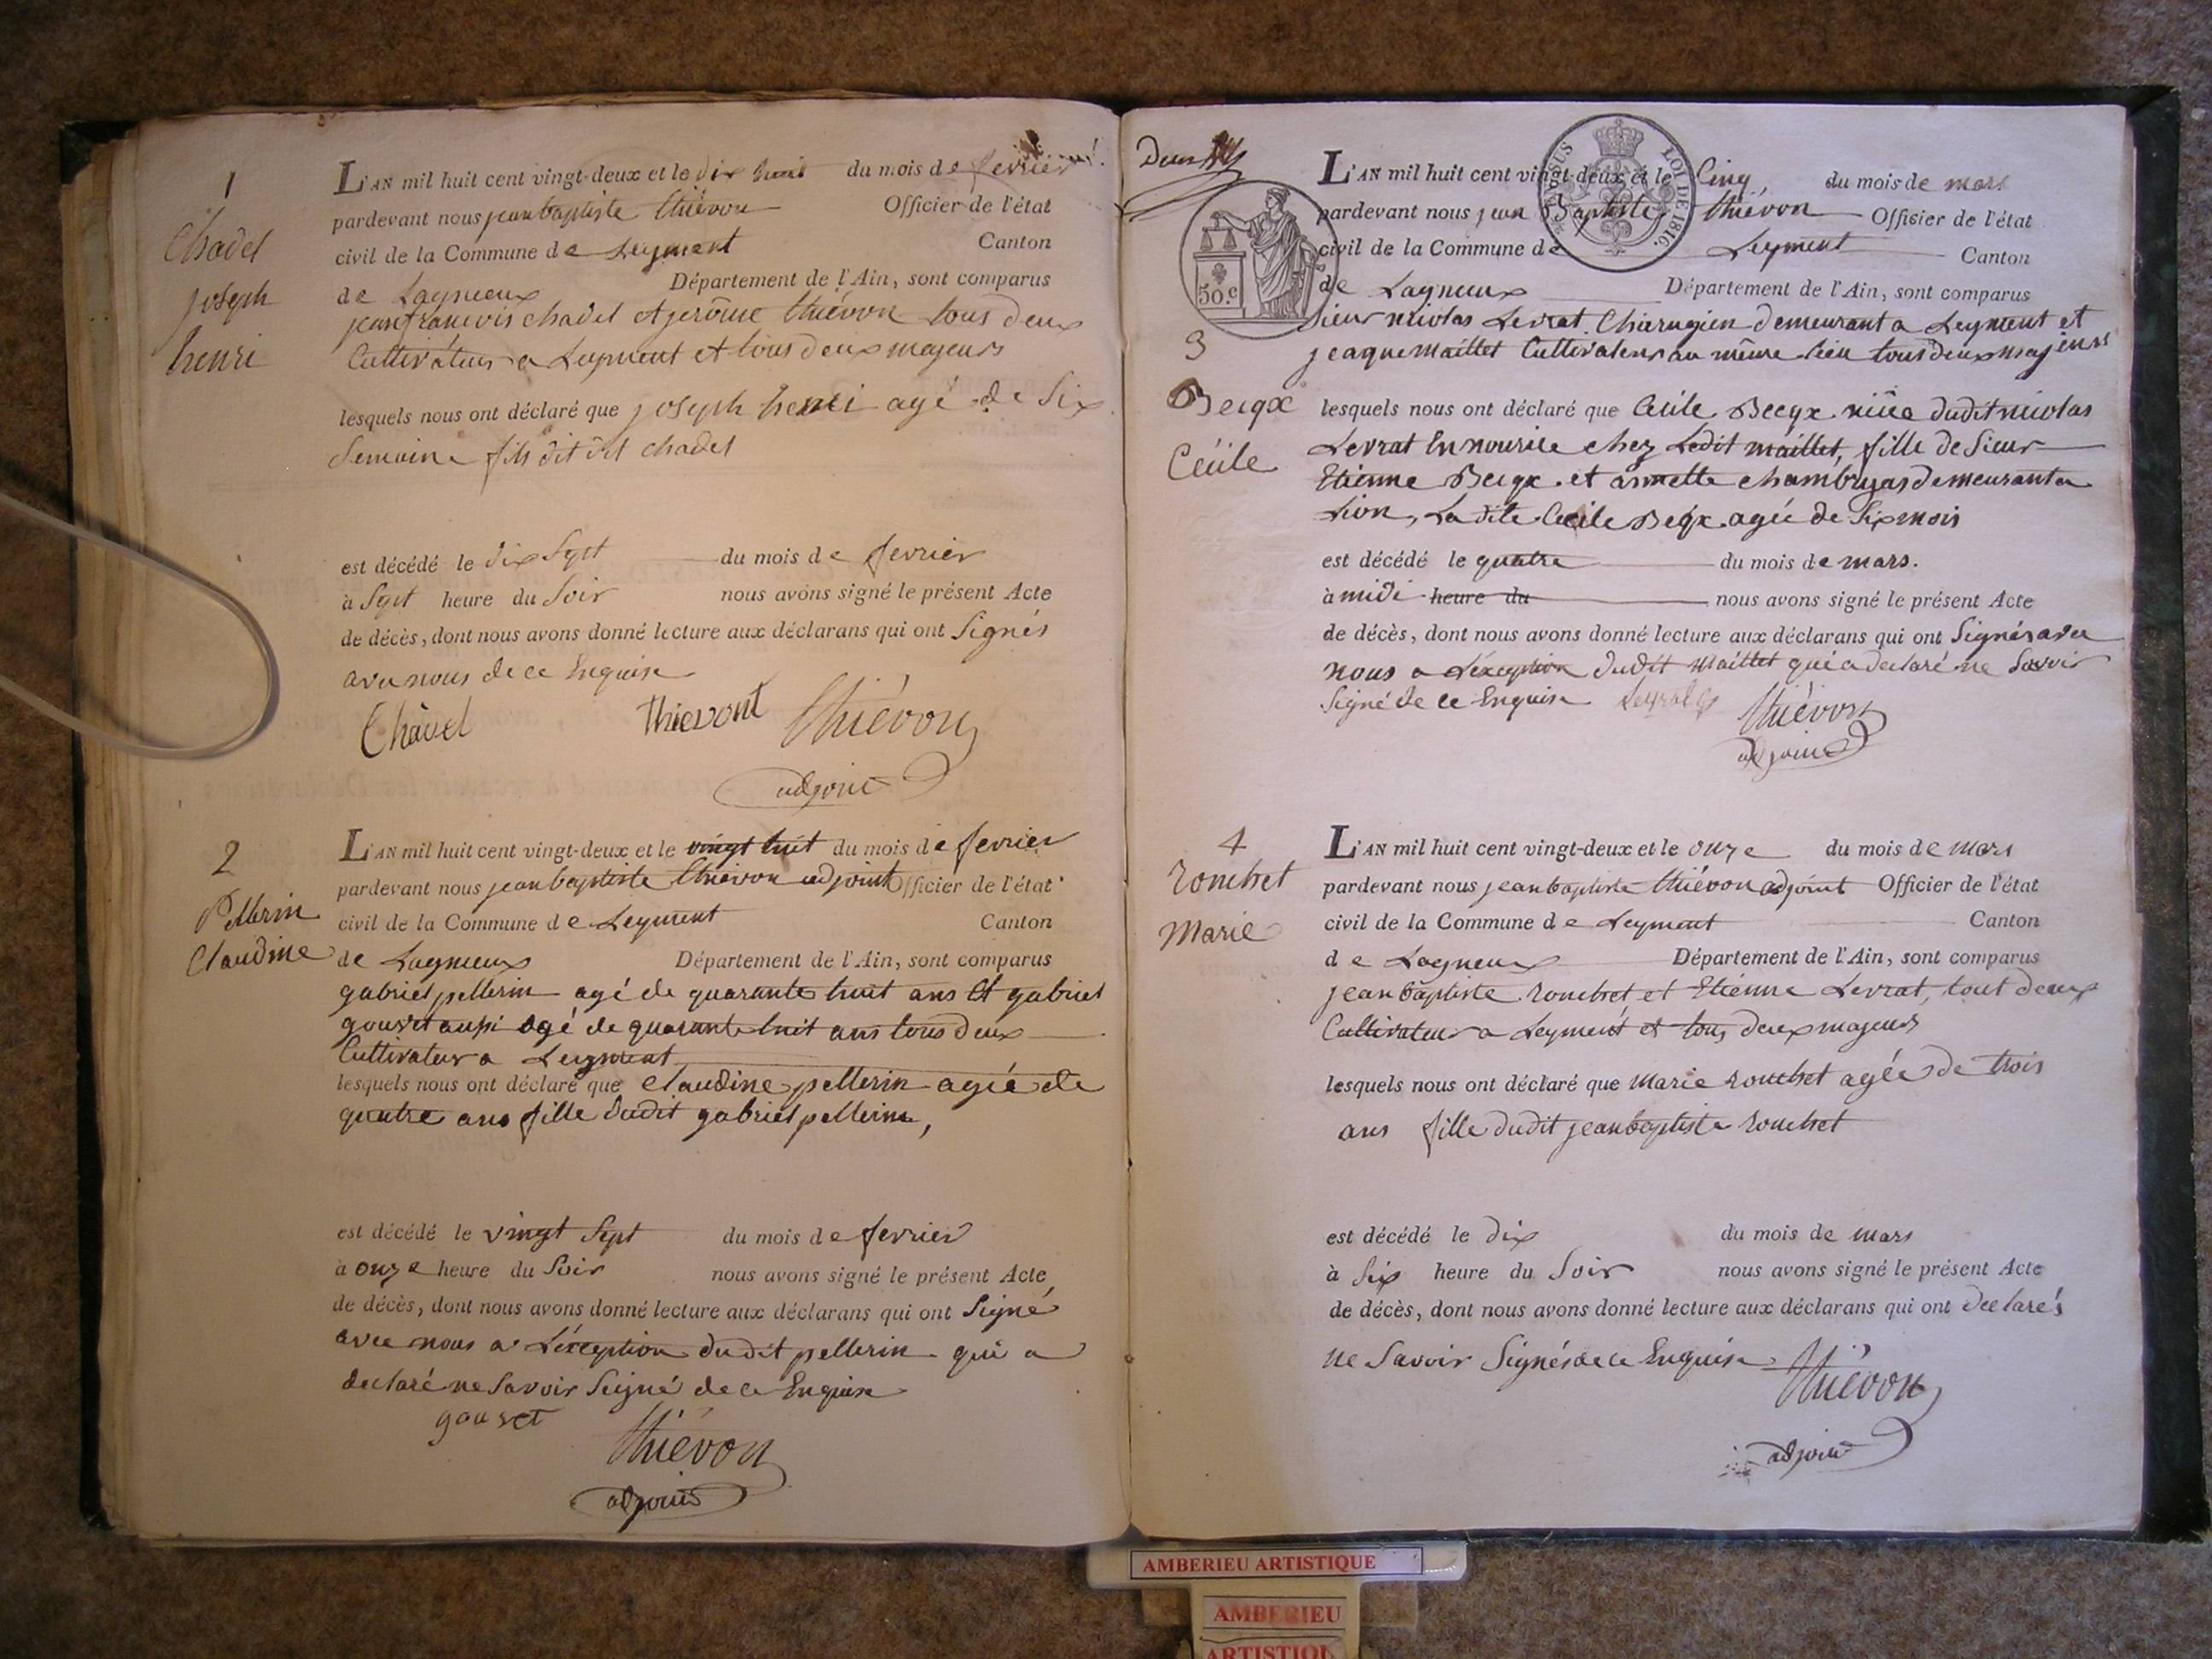 1
Chadel
joseph
henri
L'AN mil huit cent vingt-deux et le dix huit du mois de fevrier
pardevant nous jean baptiste thiévon Officier de l'état
civil de la Commune de Leyment Canton
de Lagnieux Département de l'Ain, sont comparus
jean francois chadel et jerôme thiévon tous deux
Cultivateurs a Leyment et tous deux majeurs
lesquels nous ont déclaré que joseph henri agé de Six
Semaine fils dit chadel
est décédé le dix Sept du mois de fevrier
à Sept heure du Soir nous avons signé le présent Acte
de décès, dont nous avons donné lecture aux déclarans qui ont Signés
avec nous de ce Enquise
Chavel Thievont thiévon
adjoint
2
Pellerin
Claudine
L'AN mil huit cent vingt-deux et le vingt huit du mois de fevrier
pardevant nous jean baptiste thiévon adjoint Officier de l'état
civil de la Commune de Leyment Canton
de Lagnieux Département de l'Ain, sont comparus
gabriel pellerin agé de quarante huit ans Et gabriel
gouvet aussi agé de quarante huit ans tous deux
Cultivateur a Leyment
lesquels nous ont déclaré que claudine pellerin agée de
quatre ans fille dudit gabriel pellerin,
est décédé le vingt Sept du mois de fevrier
à onze heure du Soir nous avons signé le présent Acte
de décès, dont nous avons donné lecture aux déclarans qui ont Signé
avec nous a Léxception dudit pellerin qui a
declaré ne Savoir Signé de ce Enquise
gouvet thiévon
adjoint
deux
TIMBRE LOI DE 1816.
50.c
3
Becqx
Cécile
L'AN mil huit cent vingt-deux et le Cinq du mois de mars
pardevant nous jean Baptiste thiévon Officier de l'état
civil de la Commune de Leyment Canton
de Lagnieux Département de l'Ain, sont comparus
Sieur nicolas Levrat Chirurgien demeurant a Leyment et
jeaque maillet Cultivateur au même lieu tous deux majeurs
lesquels nous ont déclaré que Cécile Becqx niéce dudit nicolas
Levrat En nourice chez Ledit maillet, fille de Sieur
Etienne Becqx et annette chambujas demeurant a
Lion, La dite Cecile Becqx agée de Six mois
est décédé le quatre du mois de mars.
à midi heure du nous avons signé le présent Acte
de décès, dont nous avons donné lecture aux déclarans qui ont Signés avec
nous a Léxception dudit maillet qui a declaré ne Savoir
Signé de ce Enquise thiévon
adjoint
4
Rouchet
Marie
L'AN mil huit cent vingt-deux et le onze du mois de mars
pardevant nous jean baptiste thiévon adjoint Officier de l'état
civil de la Commune de Leyment Canton
de Lagnieux Département de l'Ain, sont comparus
jean baptiste rouchet et Etiénne Levrat, tout deux
Cultivateur a Leyment et tous deux majeurs
lesquels nous ont déclaré que Marie rouchet agée de trois
ans fille dudit jean baptiste rouchet
est décédé le dix du mois de mars
à Six heure du Soir nous avons signé le présent Acte
de décès, dont nous avons donné lecture aux déclarans qui ont declarés
ne Savoir Signés de ce Enquise thiévon
adjoint
AMBERIEU ARTISTIQUE
AMBERIEU
ARTISTIQU